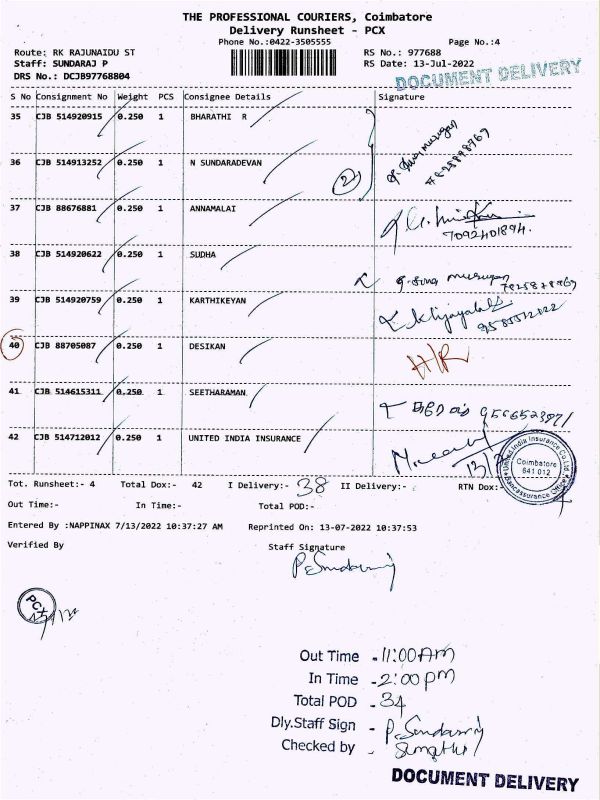 THE PROFESSIONAL COURIERS, Coimbatore
Delivery Runsheet - PCX
Phone No.:0422-3505555
Page No.:4
Route: RK RAJUNAIDU ST
RS No.: 977688
Staff: SUNDARAJ P
RS Date: 13-Jul-2022
DRS No.: DCJB97768804
DOCUMENT DELIVERY
S No Consignment No Weight PCS Consignee Details Signature
35 CJB 514920915 0.250 1 BHARATHI R
36 CJB 514913252 0.250 1 N SUNDARADEVAN
2
37 CJB 88676881 0.250 1 ANNAMALAI
7092401894.
38 CJB 514920622 0.250 1 SUDHA
39 CJB 514920759 0.250 1 KARTHIKEYAN
40 CJB 88705087 0.250 1 DESIKAN H/R
41 CJB 514615311 0.250 1 SEETHARAMAN
42 CJB 514712012 0.250 1 UNITED INDIA INSURANCE
United India Insurance Co. Ltd
Coimbatore
641 012
Tot. Runsheet:- 4 Total Dox:- 42 I Delivery:- 38 II Delivery:- RTN Dox:-
Out Time:- In Time:- Total POD:-
Entered By :NAPPINAX 7/13/2022 10:37:27 AM Reprinted On: 13-07-2022 10:37:53
Verified By Staff Signature
P. Sundarraj
PCX
Out Time - 11:00AM
In Time - 2:00pm
Total POD - 34
Dly.Staff Sign - P. Sundarraj
Checked by - Sumathi
DOCUMENT DELIVERY